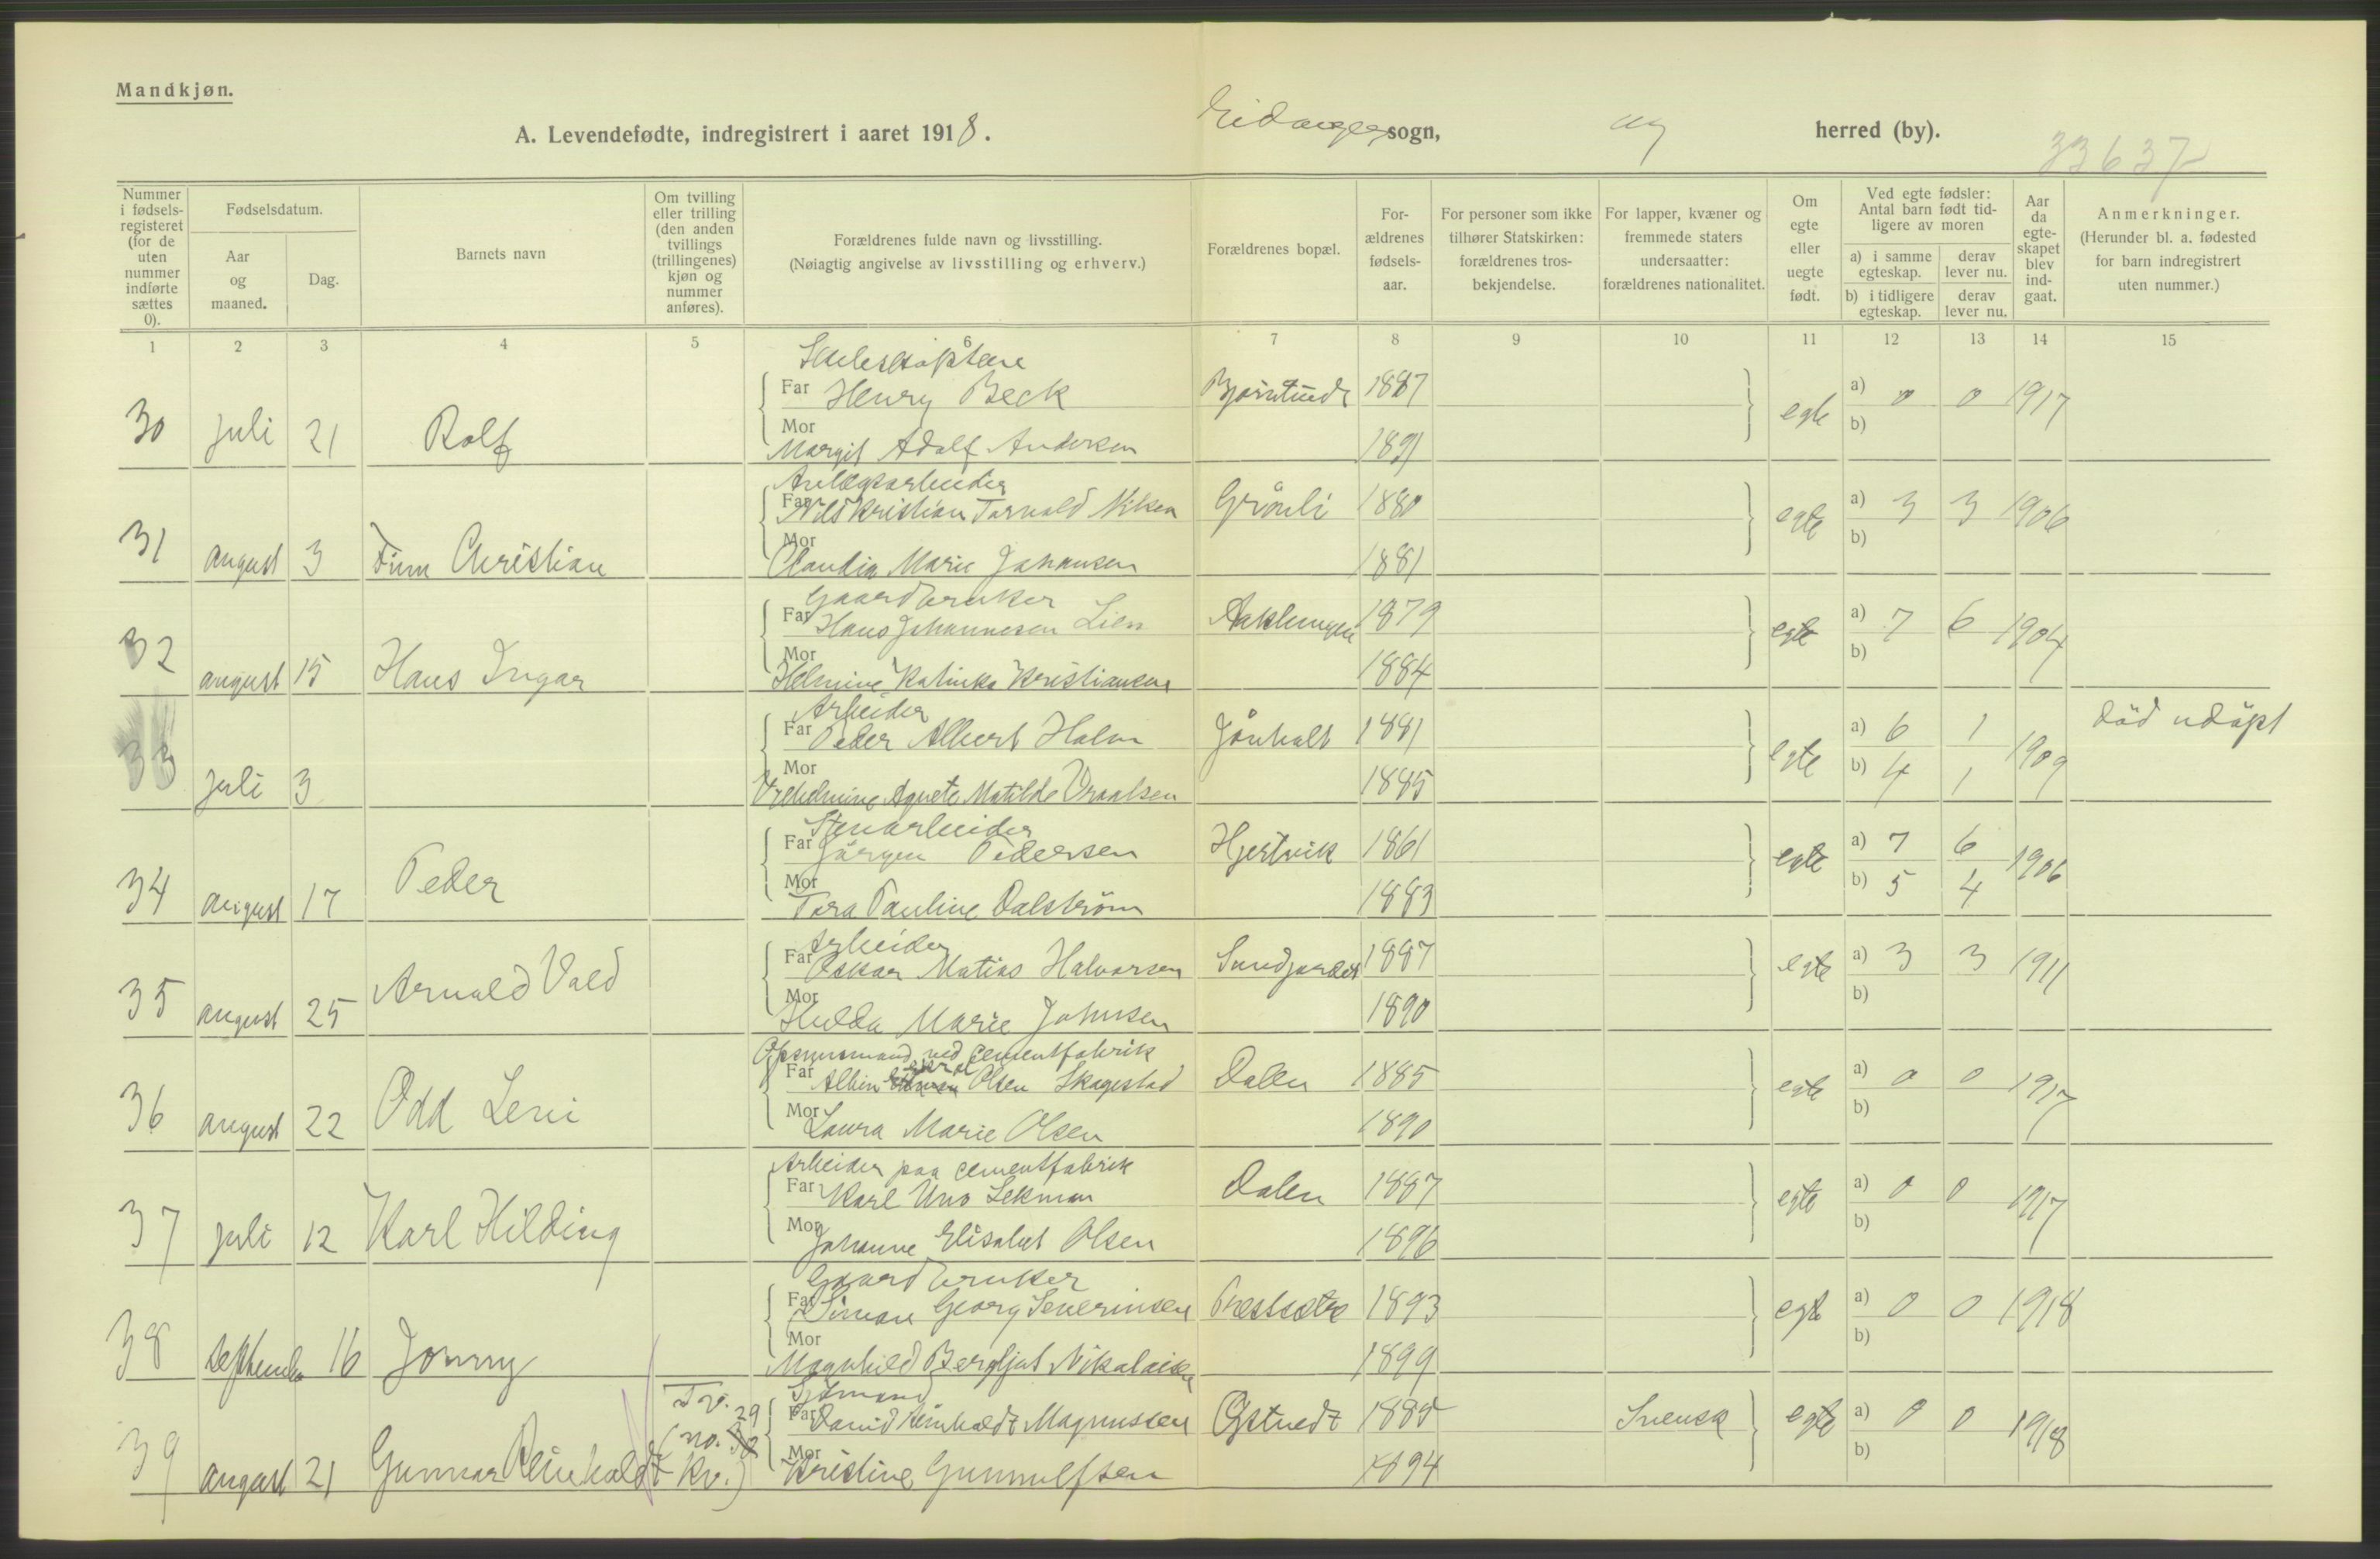 Mandkjøn.
A. Levendefødte, indregistrert i aaret 1918. Eidanger sogn, herred (by).
33637
Nummer i fødsels-registeret (for de uten nummer indførte sættes 0).
Fødselsdatum.
Aar og maaned.
Dag.
Barnets navn
Om tvilling eller trilling (den anden tvillings (trillingenes) kjøn og nummer anføres).
Forældrenes fulde navn og livsstilling.
(Nøiagtig angivelse av livsstilling og erhverv.)
Forældrenes bopæl.
For-ældrenes fødsels-aar.
For personer som ikke tilhører Statskirken: forældrenes tros-bekjendelse.
For lapper, kvæner og fremmede staters undersaatter: forældrenes nationalitet.
Om egte eller uegte født.
Ved egte fødsler: Antal barn født tid-ligere av moren
a) i samme egteskap. derav lever nu.
b) i tidligere egteskap. derav lever nu.
Aar da egte-skapet blev ind-gaat.
Anmerkninger.
(Herunder bl. a. fødested for barn indregistrert uten nummer.)
1 2 3 4 5 6 7 8 9 10 11 12 13 14 15
Far Henry Beck 1887 a) 0 0 1917
30 juli 21 Rolf egte b)
Mor Margit Adolf Andersen 1891
Anlægsarbeider
Far Nils Kristian Torvald Nilsen Grönli 1880 a) 3 3 1906
31 august 3 Finn Christian egte b)
Mor Claudia Marie Johansen 1881
Gaardbruker
Far Hans Johannesen Lien Aaklungen 1879 a) 7 6 1904
32 august 15 Hans Ingar egte b)
Mor Helmine Katinka Kristiansen 1884
Arbeider
Far Peder Albert Holm Jönholt 1881 a) 6 1 1909 död udöpt
33 juli 3 egte b) 4 1
Mor Agnete Matilde Vraalsen 1885
Stenarbeider
Far Jörgen Pedersen Hjertvik 1861 a) 7 6 1906
34 august 17 Peder egte b) 5 4
Mor Tora Pauline Dalström 1883
Arbeider
Far Oskar Matias Halvorsen Sundjordet 1887 a) 3 3 1911
35 august 25 Arnold Vald egte b)
Mor Hulda Marie Johnsen 1890
Opsynsmand ved cementfabrik
Far Albin Olsen Skogestad Dalen 1885 a) 0 0 1917
36 august 22 Odd Leni egte b)
Mor Laura Marie Olsen 1890
Arbeider paa cementfabrik
Far Karl Uno Lekman Dalen 1887 a) 0 0 1917
37 juli 12 Karl Hilding egte b)
Mor Johanne Elisabet Olsen 1896
Gaardbruker
Far Simon Georg Severinsen 1893 a) 0 0 1918
38 september 16 Jonny egte b)
Mor Magnhild Bergljot Nikolaisen 1899
Sjömand
Far David Reinholdt Magnussen Östvedt 1895 Svensk a) 0 0 1918
39 august 21 Gunnar Reinholdt Tv. (no. 29 kv.) egte b)
Mor Kristine Gunnulfsen 1894